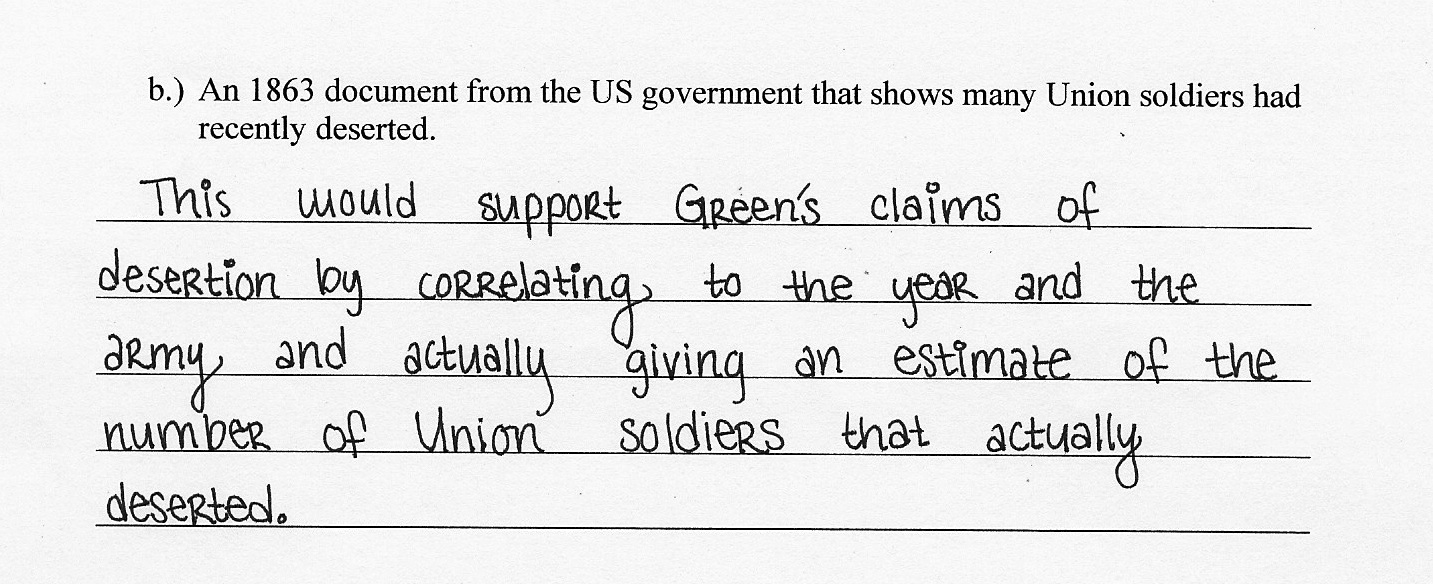 b.) An 1863 document from the US government that shows many Union soldiers had
recently deserted.
This would support Green's claims of
desertion by correlating to the year and the
army, and actually giving an estimate of the
number of Union soldiers that actually
deserted.